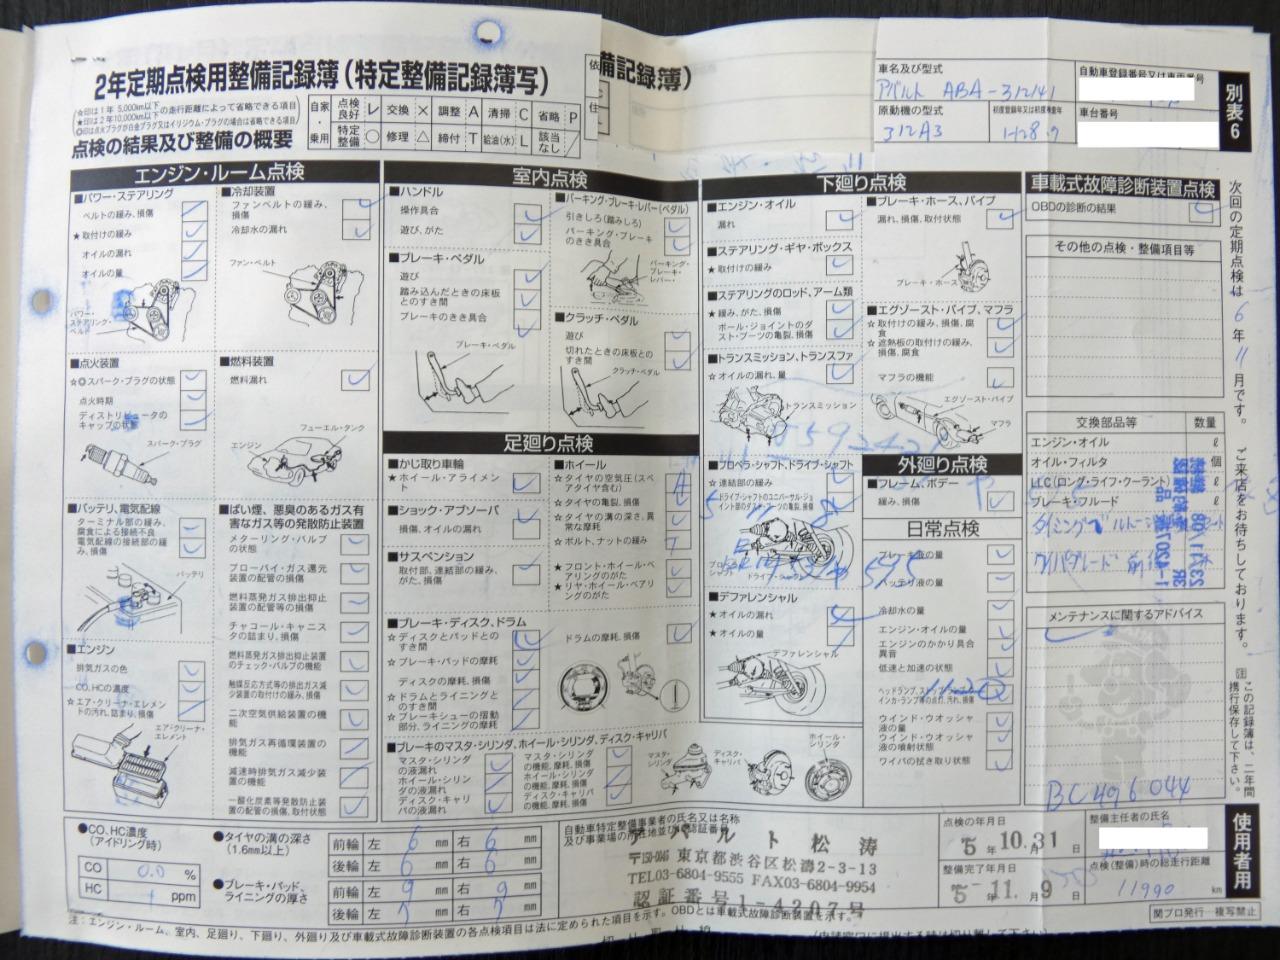 2年定期点検用整備記録簿(特定整備記録簿写)
備記録簿)
☆印は1年 5,000km以下
★印は2年10,000km以下 の走行距離によって省略できる項目
◎印は点火プラグが白金プラグ又はイリジウム・プラグの場合は省略できる項目
点検の結果及び整備の概要
自家・乗用
点検良好 レ 交換 × 調整 A 清掃 C 省略 P
特定整備 ○ 修理 △ 締付 T 給油(水) L 該当なし /
車名及び型式
アバルト ABA-312141
自動車登録番号又は車両番号
原動機の型式
312A3
初度登録年又は初度検査年
H28.9
車台番号
別表6
エンジン・ルーム点検
■パワー・ステアリング
ベルトの緩み、損傷
★取付けの緩み
オイルの漏れ
オイルの量
パワー・ステアリング・ベルト
■冷却装置
ファンベルトの緩み、損傷
冷却水の漏れ
ファン・ベルト
■点火装置
☆◎スパーク・プラグの状態
点火時期
ディストリビュータのキャップの状態
スパーク・プラグ
■燃料装置
燃料漏れ
フューエル・タンク
エンジン
■バッテリ、電気配線
ターミナル部の緩み、腐食による接続不良
電気配線の接続部の緩み、損傷
バッテリ
■エンジン
排気ガスの色
CO、HCの濃度
☆エア・クリーナ・エレメントの汚れ、詰まり、損傷
エア・クリーナ・エレメント
■ばい煙、悪臭のあるガス有害なガス等の発散防止装置
メターリング・バルブの状態
ブローバイ・ガス還元装置の配管の損傷
燃料蒸発ガス排出抑止装置の配管等の損傷
チャコール・キャニスタの詰まり、損傷
燃料蒸発ガス排出抑止装置のチェック・バルブの機能
触媒反応方式等の排出ガス減少装置の取付けの緩み、損傷
二次空気供給装置の機能
排気ガス再循環装置の機能
減速時排気ガス減少装置の機能
一酸化炭素等発散防止装置の配管の損傷、取付状態
室内点検
■ハンドル
操作具合
遊び、がた
■ブレーキ・ペダル
遊び
踏み込んだときの床板とのすき間
ブレーキのきき具合
ブレーキ・ペダル
■パーキング・ブレーキ・レバー(ペダル)
引きしろ(踏みしろ)
パーキング・ブレーキのきき具合
パーキング・ブレーキ・レバー
■クラッチ・ペダル
遊び
切れたときの床板とのすき間
クラッチ・ペダル
足廻り点検
■かじ取り車輪
★ホイール・アライメント
■ショック・アブソーバ
損傷、オイルの漏れ
■サスペンション
取付部、連結部の緩み、がた、損傷
■ホイール
☆タイヤの空気圧(スペアタイヤ含む)
☆タイヤの亀裂、損傷
☆タイヤの溝の深さ、異常な摩耗
☆ボルト、ナットの緩み
★フロント・ホイール・ベアリングのがた
★リヤ・ホイール・ベアリングのがた
■ブレーキ・ディスク、ドラム
☆ディスクとパッドとのすき間
☆ブレーキ・パッドの摩耗
ディスクの摩耗、損傷
☆ドラムとライニングとのすき間
☆ブレーキシューの摺動部分、ライニングの摩耗
ドラムの摩耗、損傷
■ブレーキのマスタ・シリンダ、ホイール・シリンダ、ディスク・キャリパ
マスタ・シリンダの液漏れ
ホイール・シリンダの液漏れ
ディスク・キャリパの液漏れ
マスタ・シリンダの機能、摩耗、損傷
ホイール・シリンダの機能、摩耗、損傷
ディスク・キャリパの機能、摩耗、損傷
マスタ・シリンダ
ディスク・キャリパ
ホイール・シリンダ
下廻り点検
■エンジン・オイル
漏れ
■ステアリング・ギヤ・ボックス
★取付けの緩み
■ステアリングのロッド、アーム類
★緩み、がた、損傷
ボール・ジョイントのダスト・ブーツの亀裂、損傷
■トランスミッション、トランスファ
☆オイルの漏れ、量
トランスミッション
■プロペラ・シャフト、ドライブ・シャフト
☆連結部の緩み
ドライブ・シャフトのユニバーサル・ジョイント部のダスト・ブーツの亀裂、損傷
■デファレンシャル
★オイルの漏れ
★オイルの量
デファレンシャル
■ブレーキ・ホース、パイプ
漏れ、損傷、取付状態
ブレーキ・ホース
■エグゾースト・パイプ、マフラ
☆取付けの緩み、損傷、腐食
☆遮熱板の取付けの緩み、損傷、腐食
マフラの機能
エグゾースト・パイプ
マフラ
外廻り点検
■フレーム、ボデー
緩み、損傷
日常点検
ブレーキ液の量
バッテリ液の量
冷却水の量
エンジン・オイルの量
エンジンのかかり具合 異音
低速と加速の状態
ウインド・ウオッシャ液の量
ウインド・ウオッシャ液の噴射状態
ワイパの拭き取り状態
車載式故障診断装置点検
OBDの診断の結果
その他の点検・整備項目等
交換部品等 数量
エンジン・オイル ℓ
オイル・フィルタ 個
LLC(ロング・ライフ・クーラント) ℓ
ブレーキ・フルード ℓ
メンテナンスに関するアドバイス
BC496044
次回の定期点検は6年11月です。 ご来店をお待ちしております。
注 この記録簿は、二年間携行保存して下さい。
使用者用
●CO、HC濃度(アイドリング時)
CO 0.0 %
HC 1 ppm
●タイヤの溝の深さ(1.6mm以上)
前輪 左 6 mm 右 6 mm
後輪 左 6 mm 右 6 mm
●ブレーキ・パッド、ライニングの厚さ
前輪 左 9 mm 右 9 mm
後輪 左 7 mm 右 7 mm
自動車特定整備事業者の氏名又は名称及び事業場の所在地並びに認証番号
アバルト松涛
〒150-0046 東京都渋谷区松濤2-3-13
TEL03-6804-9555 FAX03-6804-9954
認証番号1-4207号
点検の年月日
5年10.31日
整備完了年月日
5年11月9日
整備主任者の氏名
点検(整備)時の総走行距離
11990 km
関プロ発行 複写禁止
注:エンジン・ルーム、室内、足廻り、下廻り、外廻り及び車載式故障診断装置の各点検項目は法に定められた項目を示す。OBDとは車載式故障診断装置を示す。